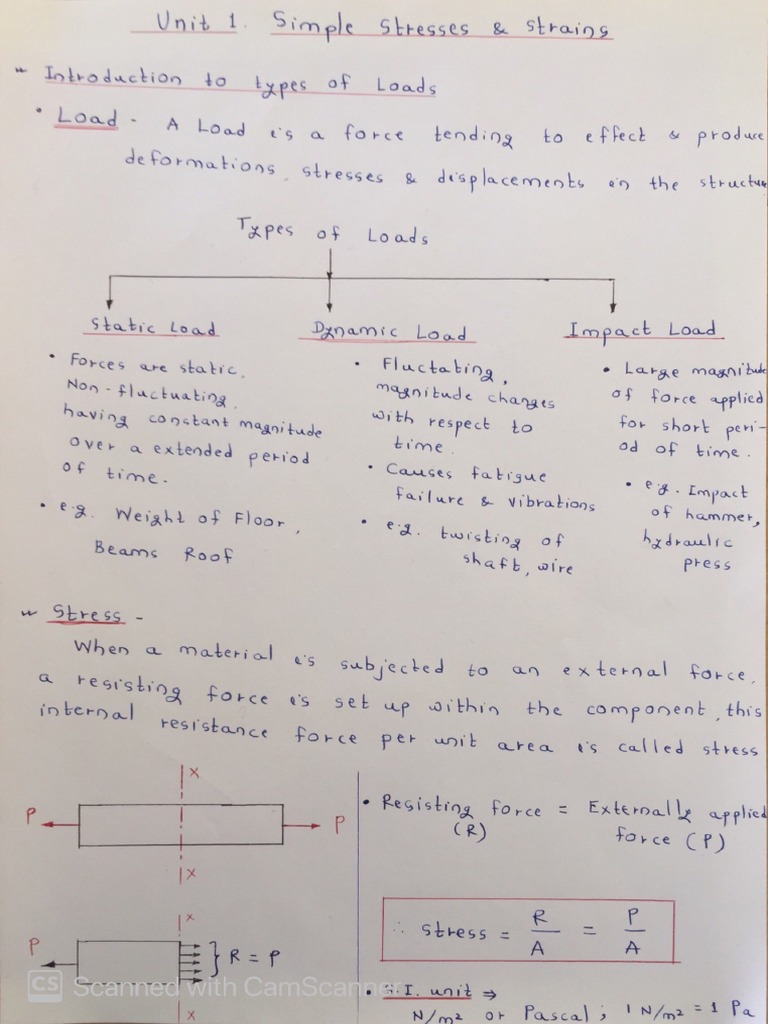 Unit 1. Simple stresses & strains
Introduction to types of Loads
• Load - A Load is a force tending to effect & produce
deformations, stresses & displacements on the structure
Types of Loads
Static Load
• Forces are static,
Non-fluctuating,
having constant magnitude
over a extended period
of time.
• e.g. Weight of Floor,
Beams Roof
Dynamic Load
• Fluctating,
magnitude changes
with respect to
time.
• Causes fatigue
failure & vibrations
• e.g. twisting of
shaft, wire
Impact Load
• Large magnitude
of force applied
for short peri-
od of time.
• e.g. Impact
of hammer,
hydraulic
press
Stress -
When a material is subjected to an external force,
a resisting force is set up within the component, this
internal resistance force per unit area is called stress
x
P P
x
x
P } R = P
x
• Resisting force = Externally applied
(R) force (P)
∴ stress = R/A = P/A
• S.I. unit ⇒
N/m² or Pascal; 1 N/m² = 1 Pa
CS Scanned with CamScanner